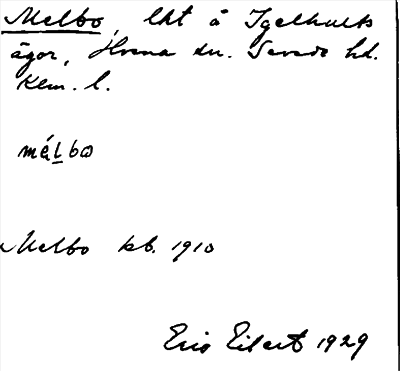 Melbo, lht å Igelhults
ägor, Hvena sn. Sevede hd.
Kalm. l.
mélbo
Melbo kb. 1910
Eric Eilert 1929